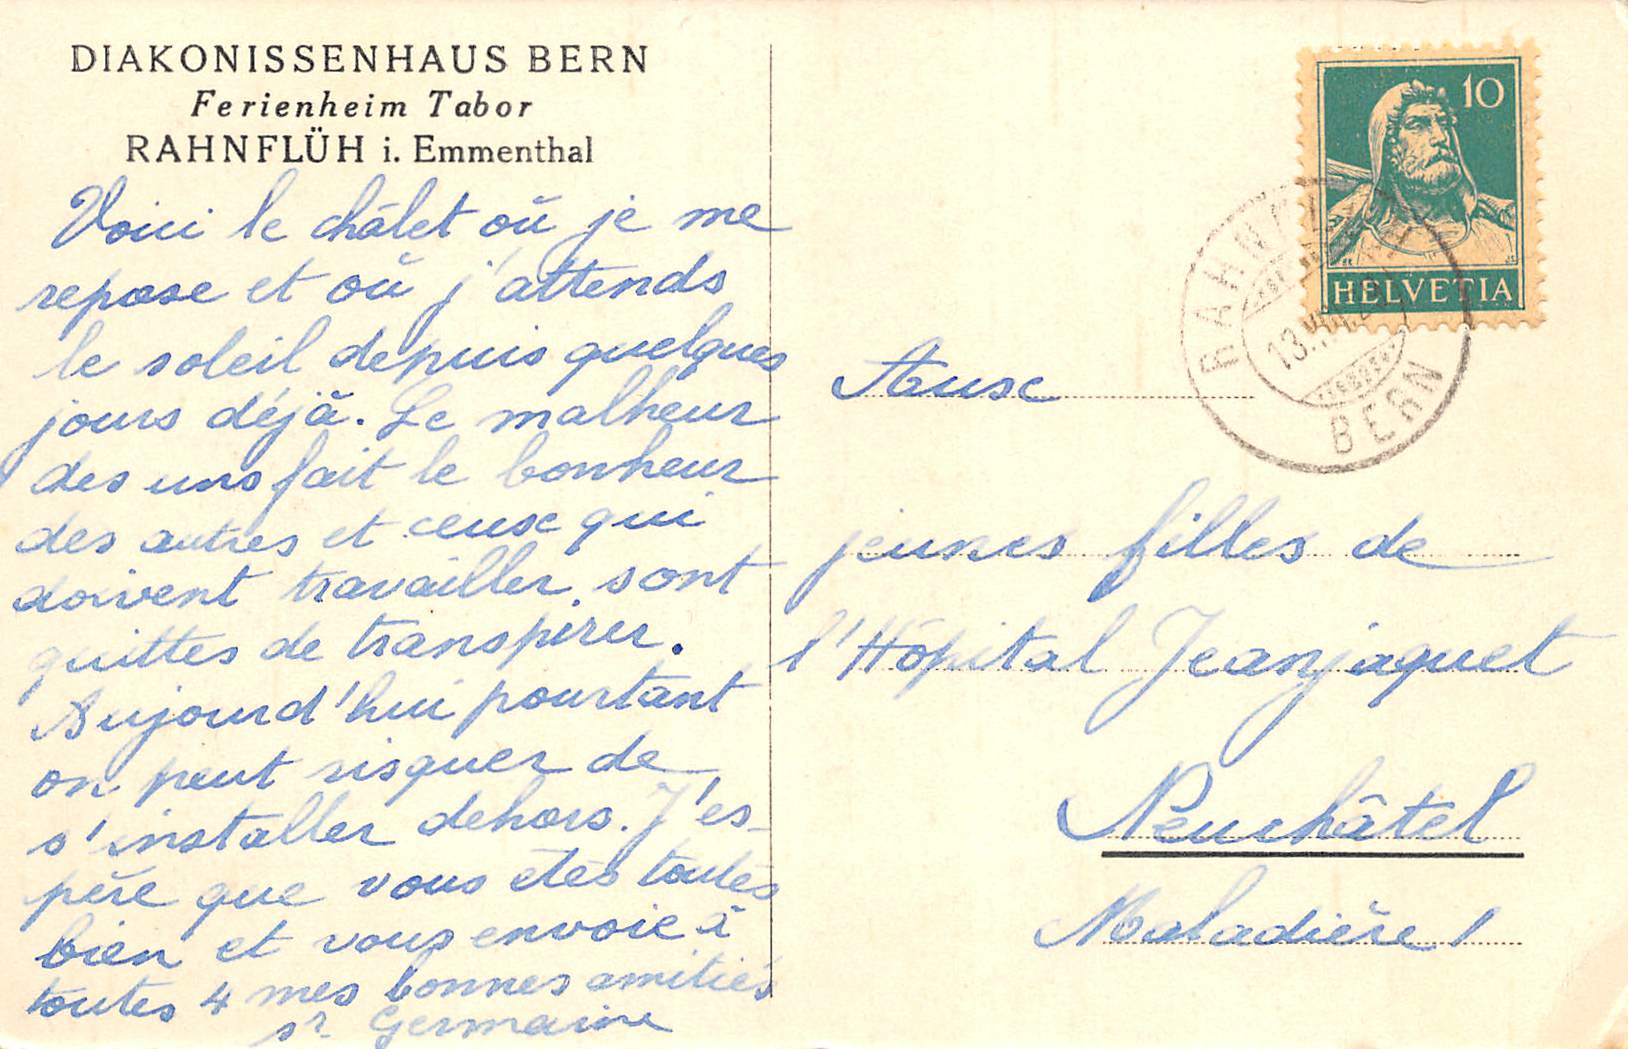 DIAKONISSENHAUS BERN
Ferienheim Tabor
RAHNFLÜH i. Emmenthal
Voici le châlet où je me
repose et où j'attends
le soleil depuis quelques
jours déjà. Le malheur
des uns fait le bonheur
des autres et ceux qui
doivent travailler, sont
quittes de transpirer.
Aujourd'hui pourtant
on peut risquer de
s'installer dehors. J'es-
père que vous êtes toutes
bien et vous envoie à
toutes 4 mes bonnes amitiés
sr Germaine
10
HELVETIA
BERN
Aux
jeunes filles de
l'Hôpital Jeanjaquet
Neuchâtel
Maladière 1